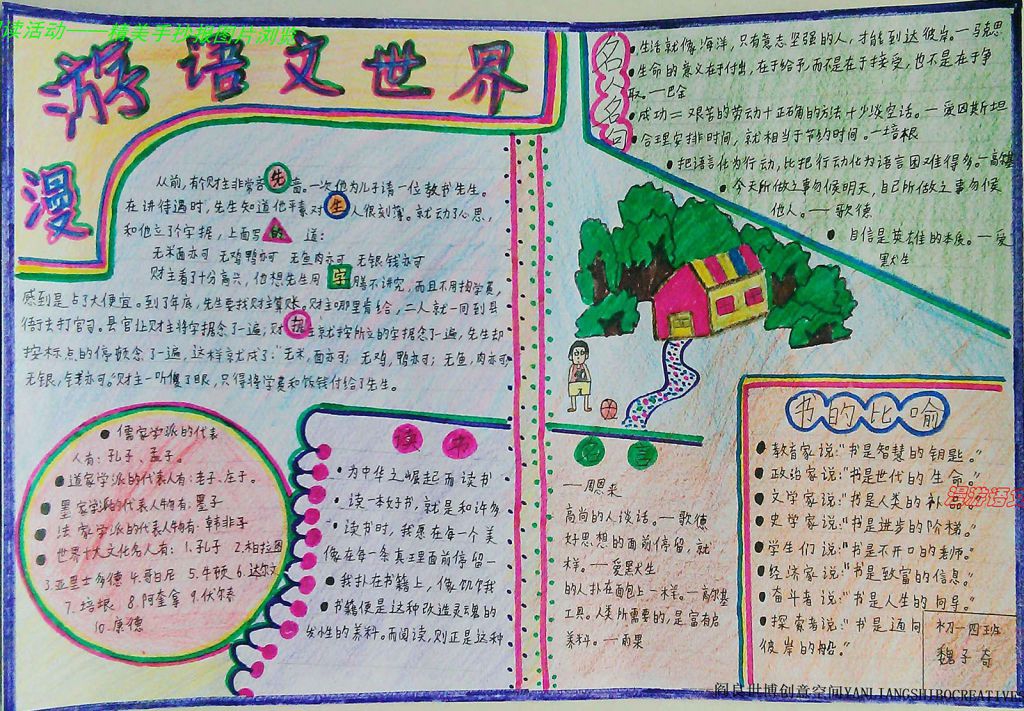 读活动——精美手抄报图片浏览
漫游语文世界
从前,有个财主非常吝先啬。一次他为儿子请一位教书先生。
在讲待遇时,先生知道他平素对生人很刻薄。就动了心思,
和他立了字据,上面写的道:
无米面亦可 无鸡鸭亦可 无鱼肉亦可 无银钱亦可
财主看了十分高兴,他想先生用字膳不讲究,而且不用掏学费,
感到是占了大便宜。到了年底,先生要找财主算账。财主哪里肯给,二人就一同到县
衙去打官司。县官让财主将字据念了一遍,财据主就按所立的字据念了一遍,先生却
按标点的停顿念了一遍,这样就成了:“无米,面亦可;无鸡,鸭亦可;无鱼,肉亦可
无银,钱亦可。”财主一听傻了眼,只得将学费和饭钱付给了先生。
儒家学派的代表
人有:孔子、孟子。
道家学派的代表人有:老子、庄子。
墨家学派的代表人物有:墨子
法家学派的代表人物有:韩非子
世界十大文化名人有:1.孔子 2.柏拉图
3.亚里士多德 4.哥白尼 5.牛顿 6.达尔文
7.培根 8.阿奎拿 9.伏尔泰
10.康德
读书名言
为中华之崛起而读书 —周恩来
读一本好书,就是和许多高尚的人谈话。—歌德
读书时,我愿在每一个美好思想的面前停留,就
像在每一条真理面前停留一样。—爱默生
我扑在书籍上,像饥饿的人扑在面包上一样。—高尔基
书籍便是这种改造灵魂的工具。人类所需要的,是富有启
发性的养料。而阅读,则正是这种养料。—雨果
名人名句
生活就像海洋,只有意志坚强的人,才能到达彼岸。—马克思
生命的意义在于付出,在于给予,而不是在于接受,也不是在于争
取。—巴金
成功=艰苦的劳动+正确的方法+少谈空话。—爱因斯坦
合理安排时间,就相当于节约时间。—培根
把语言化为行动,比把行动化为语言困难得多。—高尔基
今天所做之事勿候明天,自己所做之事勿候
他人。—歌德
自信是英雄的本质。—爱
默生
书的比喻
教育家说:“书是智慧的钥匙。”
政治家说:“书是世代的生命。”
文学家说:“书是人类的补品。”
史学家说:“书是进步的阶梯。”
学生们说:“书是不开口的老师。”
经济家说:“书是致富的信息。”
奋斗者说:“书是人生的向导。”
探索者说:“书是通向
彼岸的船。”
漫游语文
初一四班
魏子奇
阎良世博创意空间YANLIANGSHIBOCREATIVES